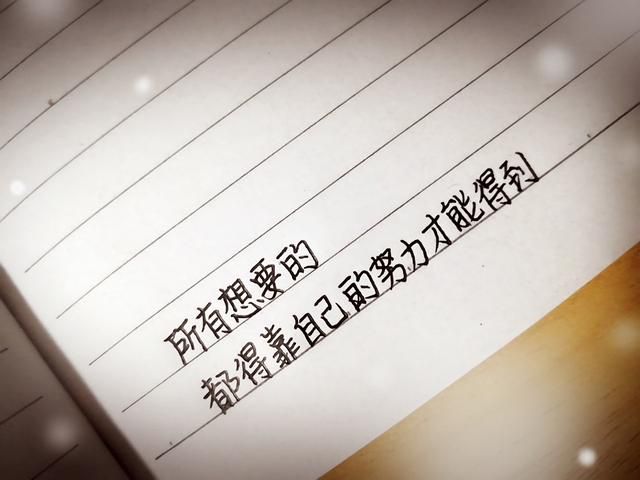 所有想要的
都得靠自己的努力才能得到